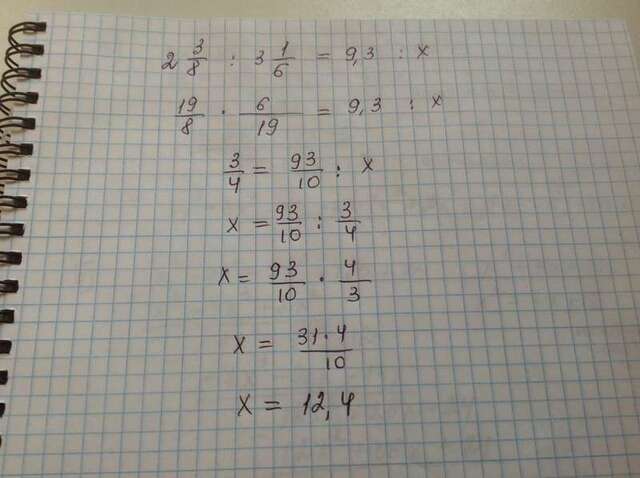 2 3/8 : 3 1/6 = 9,3 : x
19/8 · 6/19 = 9,3 : x
3/4 = 93/10 : x
x = 93/10 : 3/4
x = 93/10 · 4/3
x = 31·4/10
x = 12,4